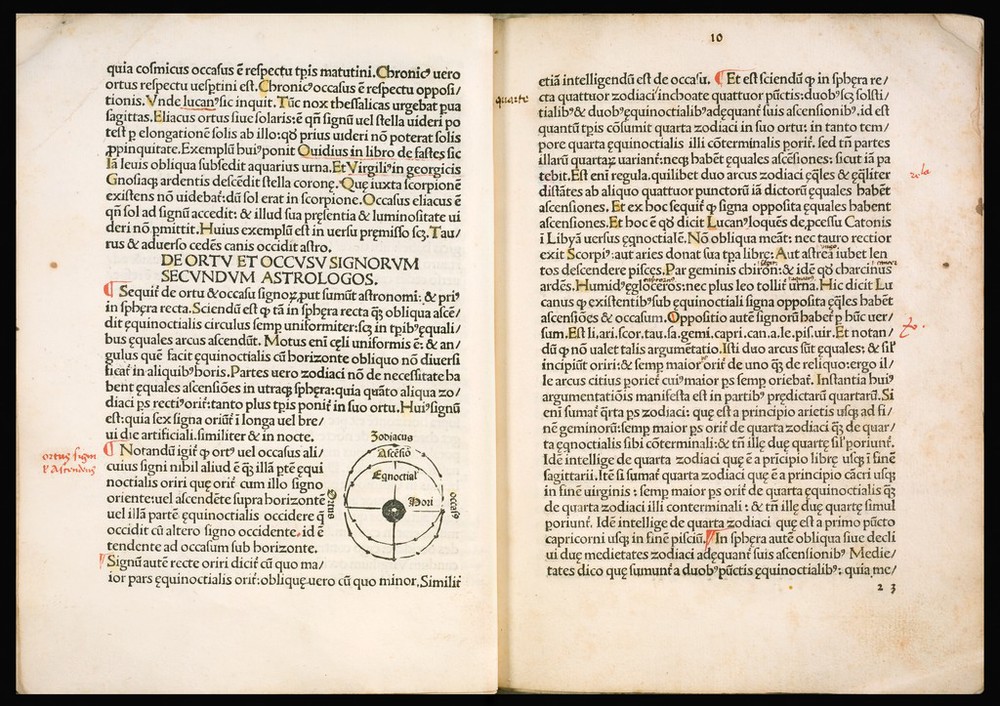 quia cosmicus occasus ē respectu tꝑis matutini. Chronicꝰ uero
ortus respectu uesꝑtini est. Chronicꝰ occasus ē respectu opposi/
tionis. Vnde lucanꝰ sic inquit. Tūc nox thessalicas urgebat ꝑua
sagittas. Eliacus ortus siue solaris: ē qñ signū uel stella uideri po
test ꝑ elongationē solis ab illo: qđ prius uideri nō poterat solis
ꝓpinquitate. Exemplū huiꝰ ponit Quidius in libro de fastes sic
Iā leuis obliqua subsedit aquarius urna. Et Virgiliꝰ in georgicis
Gnosiaqꝫ ardentis descēdit stella coronę. Que iuxta scorpionē
existens nō uidebat᷑: dū sol erat in scorpione. Occasus eliacus ē
qñ sol ad signū accedit: & illud sua pręsentia & luminositate ui
deri nō ꝑmittit. Huius exemplū est in uersu pręmisso scꝫ. Tau/
rus & aduerso cedēs canis occidit astro.
DE ORTV ET OCCVSV SIGNORVM
SECVNDVM ASTROLOGOS.
Sequit᷑ de ortu & occasu signoꝝ, put sumūt astronomi: & priꝰ
in sphęra recta. Sciendū est ꝙ tā in sphęra recta qꝫ obliqua ascē/
dit ęquinoctialis circulus semꝑ uniformiter: scꝫ in tꝑibꝰ ęquali/
bus ęquales arcus ascendūt. Motus eni cęli uniformis ē: & an/
gulus quē facit ęquinoctialis cū horizonte obliquo nō diuersi
ficat᷑ in aliquibꝰ horis. Partes uero zodiaci nō de necessitate ha
bent ęquales ascensiões in utraqꝫ sphęra: quia quāto aliqua zo/
diaci ps rectiꝰ orit᷑: tanto plus tꝑis ponit᷑ in suo ortu. Huiꝰ signū
est: quia sex signa oriūt᷑ i longa uel bre/
ui die artificiali. similiter & in nocte.
Notandū igit᷑ ꝙ ortꝰ uel occasus ali/
cuius signi nihil aliud ē qꝫ illā ptē ęqui
noctialis oriri quę orit᷑ cum illo signo
oriente: uel ascendēte supra horizontē
uel illā partē ęquinoctialis occidere q̄
occidit cū altero signo occidente, id ē
tendente ad occasum sub horizonte.
Signū autē recte oriri dicit᷑ cū quo ma/
ior pars ęquinoctialis orit᷑: oblique uero cū quo minor. Similit᷑
Zodiacus
Ascēsio
Eqnoctial᷑
Hori
Ortus
occasꝰ
ortus signi
10
etiā intelligendū est de occasu. Et est sciendū ꝙ in sphęra re/
cta quattuor zodiaci inchoate quattuor pūctis: duobꝰ scꝫ solsti/
tialibꝰ & duobꝰ ęquinoctialibꝰ adęquant᷑ suis ascensionibꝰ, id est
quantū tꝑis cōsumit quarta zodiaci in suo ortu: in tanto tem/
pore quarta ęquinoctialis illi cōterminalis porit᷑. sed tñ partes
illarū quartaꝝ uariant᷑: neqꝫ habēt ęquales ascēsiones: sicut iā pa
tebit. Est eni regula. quilibet duo arcus zodiaci ęqles & ęqliter
distātes ab aliquo quattuor punctorū iā dictorū ęquales habēt
ascensiones. Et ex hoc sequit᷑ ꝙ signa opposita ęquales habent
ascensiones. Et hoc ē qđ dicit Lucanꝰ loquēs de ꝓcessu Catonis
i Libyā uersus ęqnoctialē. Nō obliqua meāt: nec tauro rectior
exit Scorpiꝰ: aut aries donat sua tpa librę: Aut astrea iubet len
tos descendere pisces. Par geminis chiron: & idē qđ charcinus
ardēs. Humidꝰ ęgloceros: nec plus leo tollit᷑ urna. Hic dicit Lu
canus ꝙ existentibꝰ sub ęquinoctiali signa opposita ęqles habēt
ascēsiones & occasum. Oppositio autē signorū habet᷑ p hūc uer/
sum. Est li, ari. scor. tau. sa. gemi. capri. can. a. le. pis. uir. Et notan/
dū ꝙ nō ualet talis argumētatio. Isti duo arcus sūt ęquales: & sił
incipiūt oriri: & semp maior orit᷑ de uno qꝫ de reliquo: ergo il/
le arcus citius poriet᷑ cuiꝰ maior ps semp oriebat᷑. Instantia huiꝰ
argumentatiois manifesta est in partibꝰ prędictarū quartarū. Si
eni sumat᷑ q̄rta ps zodiaci: quę est a principio arietis usqꝫ ad fi/
nē geminorū: semp maior ps orit᷑ de quarta zodiaci qꝫ de quar/
ta ęqnoctialis sibi cōterminali: & tñ illę duę quartę sił poriunt᷑.
Idē intellige de quarta zodiaci quę ē a prīcipio librę usqꝫ i finē
sagittarii. Itē si sumat᷑ quarta zodiaci quę ē a principio cācri usqꝫ
in finē uirginis: semp maior ps orit᷑ de quarta ęquinoctialis qꝫ
de quarta zodiaci illi conterminali: & tñ illę duę quartę simul
poriunt᷑. Idē intellige de quarta zodiaci quę est a primo pūcto
capricorni usqꝫ in finē pisciū. In sphęra autē obliqua siue decli
ui duę medietates zodiaci adęquant᷑ suis ascensionibꝰ Medie/
tates dico quę sumunt᷑ a duobꝰ pūctis ęquinoctialibꝰ: quia me/
2 3
quarte